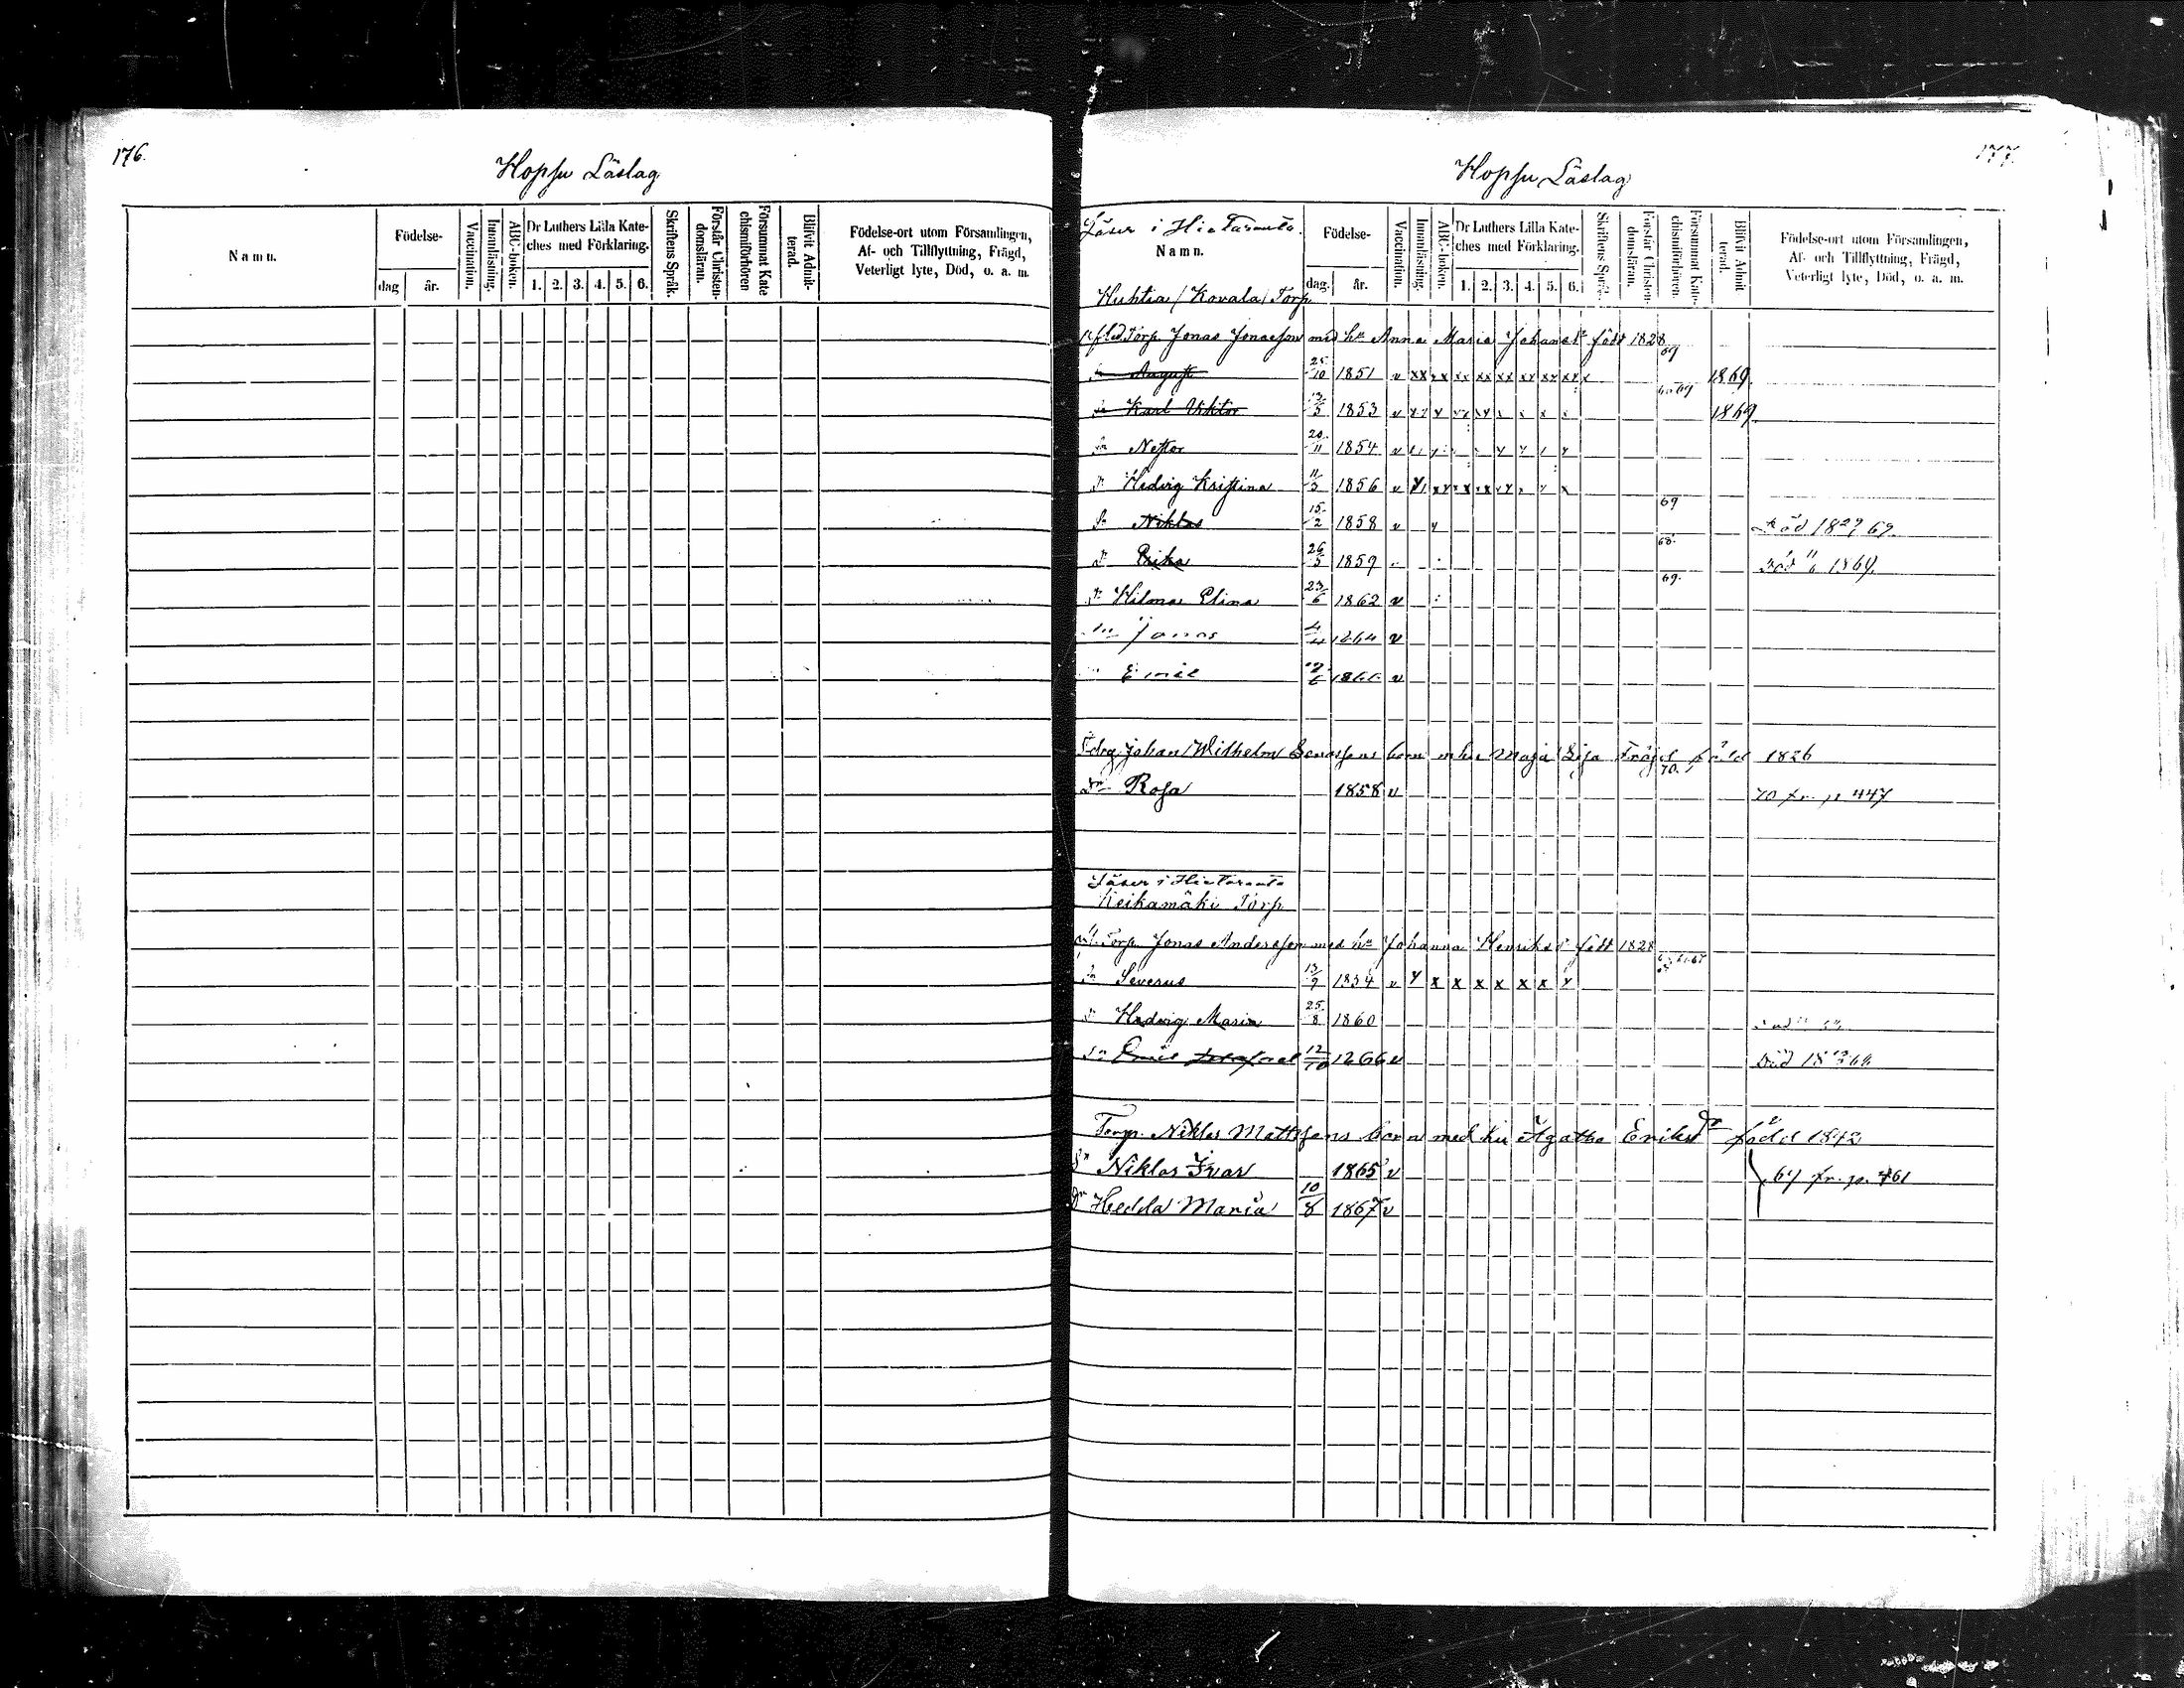 176.
Hopsu Läslag
Namn.
Födelse-
dag
år.
Vaccination.
Innanläsning.
ABC-boken.
Dr Luthers Lilla Kate-
ches med Förklaring.
1. 2. 3. 4. 5. 6.
Skriftens Språk.
Förstår Christen-
domsläran.
Försummat Kate
chismiförhören
Blifvit Admit-
terad.
Födelse-ort utom Församlingen,
Af- och Tillflyttning, Frägd,
Veterligt lyte, Död, o. a. m.
177.
Hopsu Läslag
Läser i Hietaranta.
Namn.
Födelse-
dag.
år.
Vaccination.
Innanläsning.
ABC-boken.
Dr Luthers Lilla Kate-
ches med Förklaring.
1. 2. 3. 4. 5. 6.
Skriftens Språk.
Förstår Christen-
domsläran.
Försummat Kate-
chismiförhören.
Blifvit Admit
terad.
Födelse-ort utom Församlingen,
Af- och Tillflyttning, Frägd,
Veterligt lyte, Död, o. a. m.
Huhtia / Kovala / Torp
Torp. Jonas Jonasson med hu Anna Maria Johansdr född 1828
August 25/10 1851 v xx xx xx xx xx xx xx xx 69 1869.
Karl Viktor 13/5 1853 v 1869.
Sn Nestor 20/11 1854 v
Dr Hedvig Kristina 11/3 1856 v
Sn Niklas 15/2 1858 v 69 Död 69.
Dr Erika 26/5 1859 68. Död 1869.
Dr Hilma Elina 23/6 1862 v 69.
Sn Jonas 1864 v
Emil v
Johan Wilhelm barn m hu Maja Lisa född 1826
Dr Rosa 1858 v 70. 70 fr. p 447
Läser i Hietaranta
Keikamäki Torp
Torp. Jonas Andersson med hu Johanna Henriksdr född 1828
Sn Severus 13/9 1854 v y x x x x x x y
Dr Hedvig Maria 25/8 1860
Sn Emil 12/10 1866 v Död
Torp. Niklas Mattssons barn med hu Agatha Eriksdr född 1842
Sn Niklas Ivar 1865 v
69 fr. p. 461
Dr Hedda Maria 10/8 1867 v